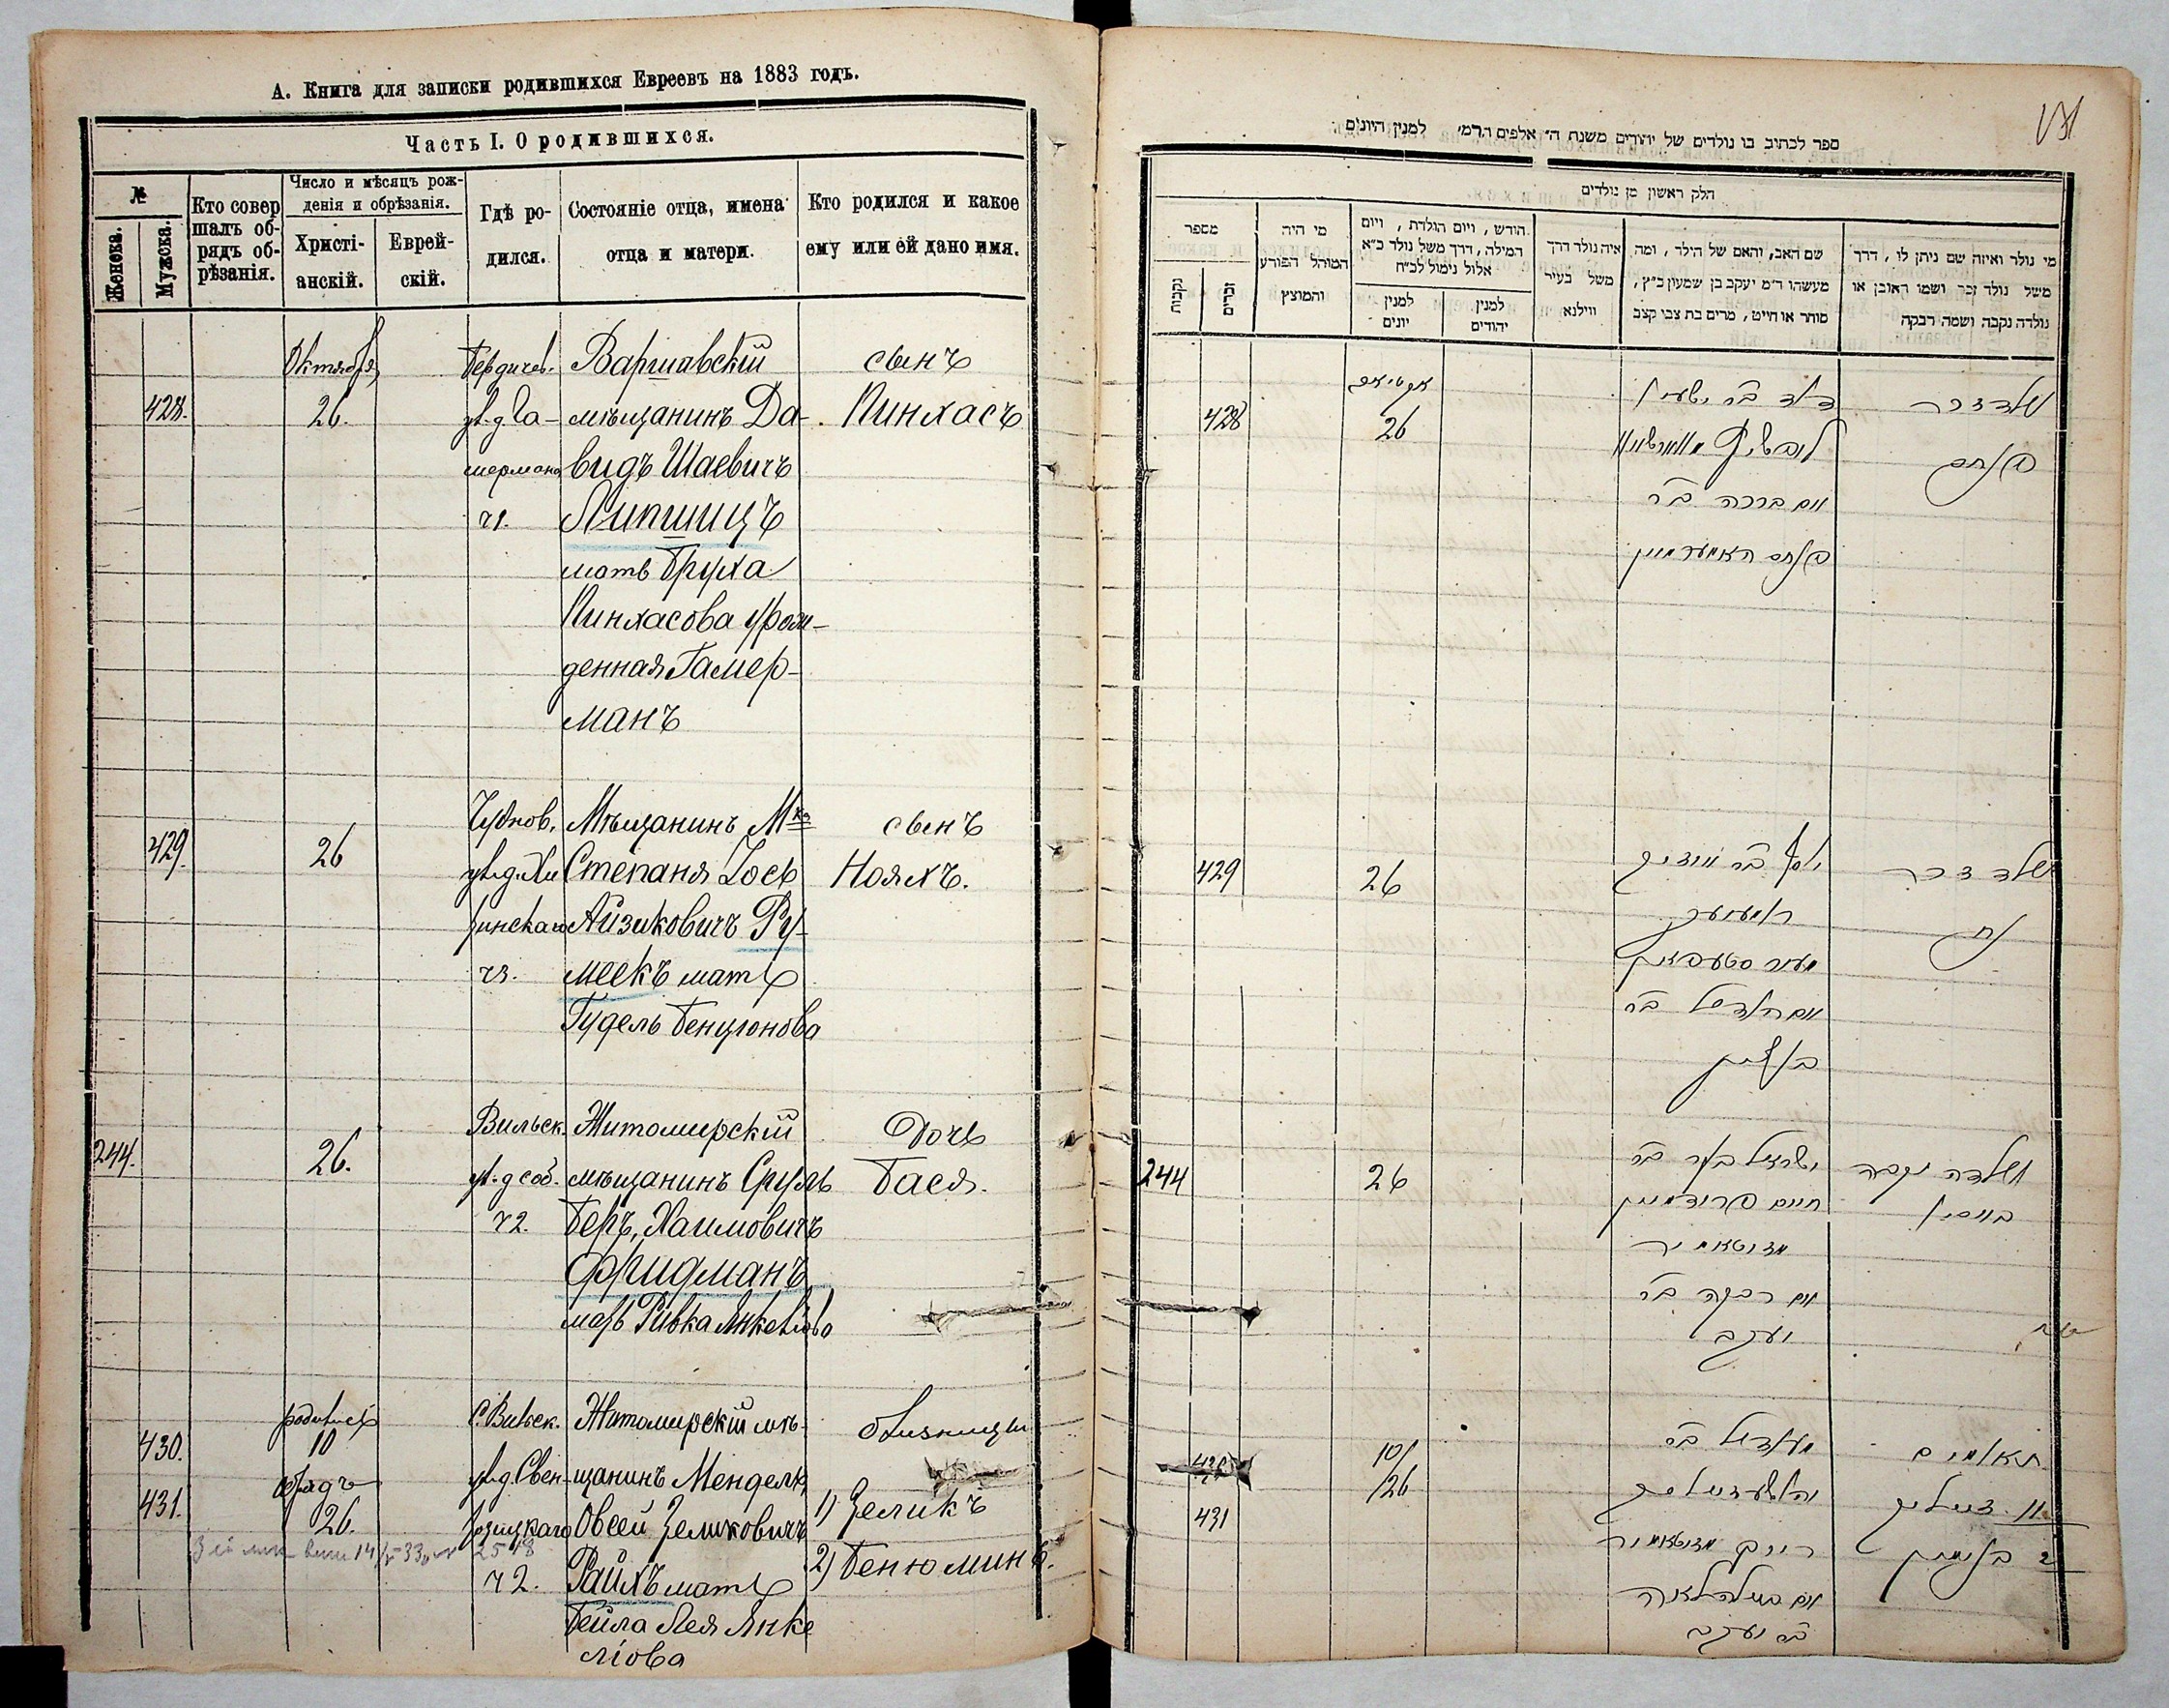 А. Книга для записки родившихся Евреевъ на 1883 годъ.
Часть I. О родившихся.
№
Женска.
Мужска.
Кто совер
шалъ об-
рядъ об-
рѣзанія.
Число и мѣсяцъ рож-
денія и обрѣзанія.
Христі-
анскій.
Еврей-
скій.
Гдѣ ро-
дился.
Состояніе отца, имена
отца и матери.
Кто родился и какое
ему или ей дано имя.
Октября
428.
26.
Бердичев.
ул. д. Га-
мермана
ч1.
Варшавскій
мѣщанинъ Да-
видъ Шаевичъ
Липшицъ
мать Бруха
Пинхасова урож-
денная Гамер-
манъ
сынъ
Пинхасъ
429.
26
Чуднов.
ч3.
Мѣщанинъ М-ка
Степаня Іось
Айзиковичъ Ру-
меекъ мать
Гудель Бенціонова
сынъ
Нояхъ.
244.
26.
Вильск.
ул. д соб.
ч2.
Житомирскій
мѣщанинъ Сруль
Беръ, Хаимовичъ
Фридманъ
мать Ривка Янкелiова
Дочь
Бася.
430.
431.
родились
10
обрядъ
26.
С. Вильск.
ч 2.
Житомирскій мѣ-
щанинъ Мендель,
Овсей Зеликовичъ
Райхъ мать
Бейла Лея Янке
ліова
близнецы
1) Зеликъ
2) Бенюминъ.
ספר לכתוב בו נולדים של יהודים משנת ה״ אלפים הרמ׳ למנין היונים
חלק ראשון מן נולדים
מספר
נקבות
זכרים
מי היה
המוהל הפורע
והמוצץ
חודש, ויום הולדת, ויום
המילה, דרך משל נולד כ״א
אלול נימול לכ״ח
למנין
יונים
למנין
יהודים
איה נולד דרך
משל בעיר
ווילנא
שם האב, והאם של הילד, ומה
מעשהו ד״מ יעקב בן שמעון כ״ץ,
סוחר או חייט, מרים בת צבי קצב
מי נולד ואיזה שם ניתן לו, דרך
משל נולד זכר ושמו ראובן או
נולדה נקבה ושמה רבקה
428
26
ואם ברכה ב״ר
פנחס האמערמאן
נולד זכר
פנחס
429
26
יוסף ב״ר אייזיק
ואם הודיל ב״ר
בן ציון
נולד זכר
נח
244
26
ישראל בער ב״ר
חיים פרידמאן
מזיטאמיר
ואם רבקה ב״ר
יעקב
נולדה נקבה
באסיא
430
431
10/
/26
מענדיל ב״ר
רייך מזיטאמיר
ואם ביילה לאה
ב״ר יעקב
תאומים
1. זעליק
2 בנימין